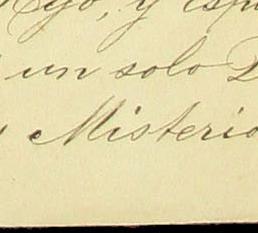 y espí
un solo D
Misterio